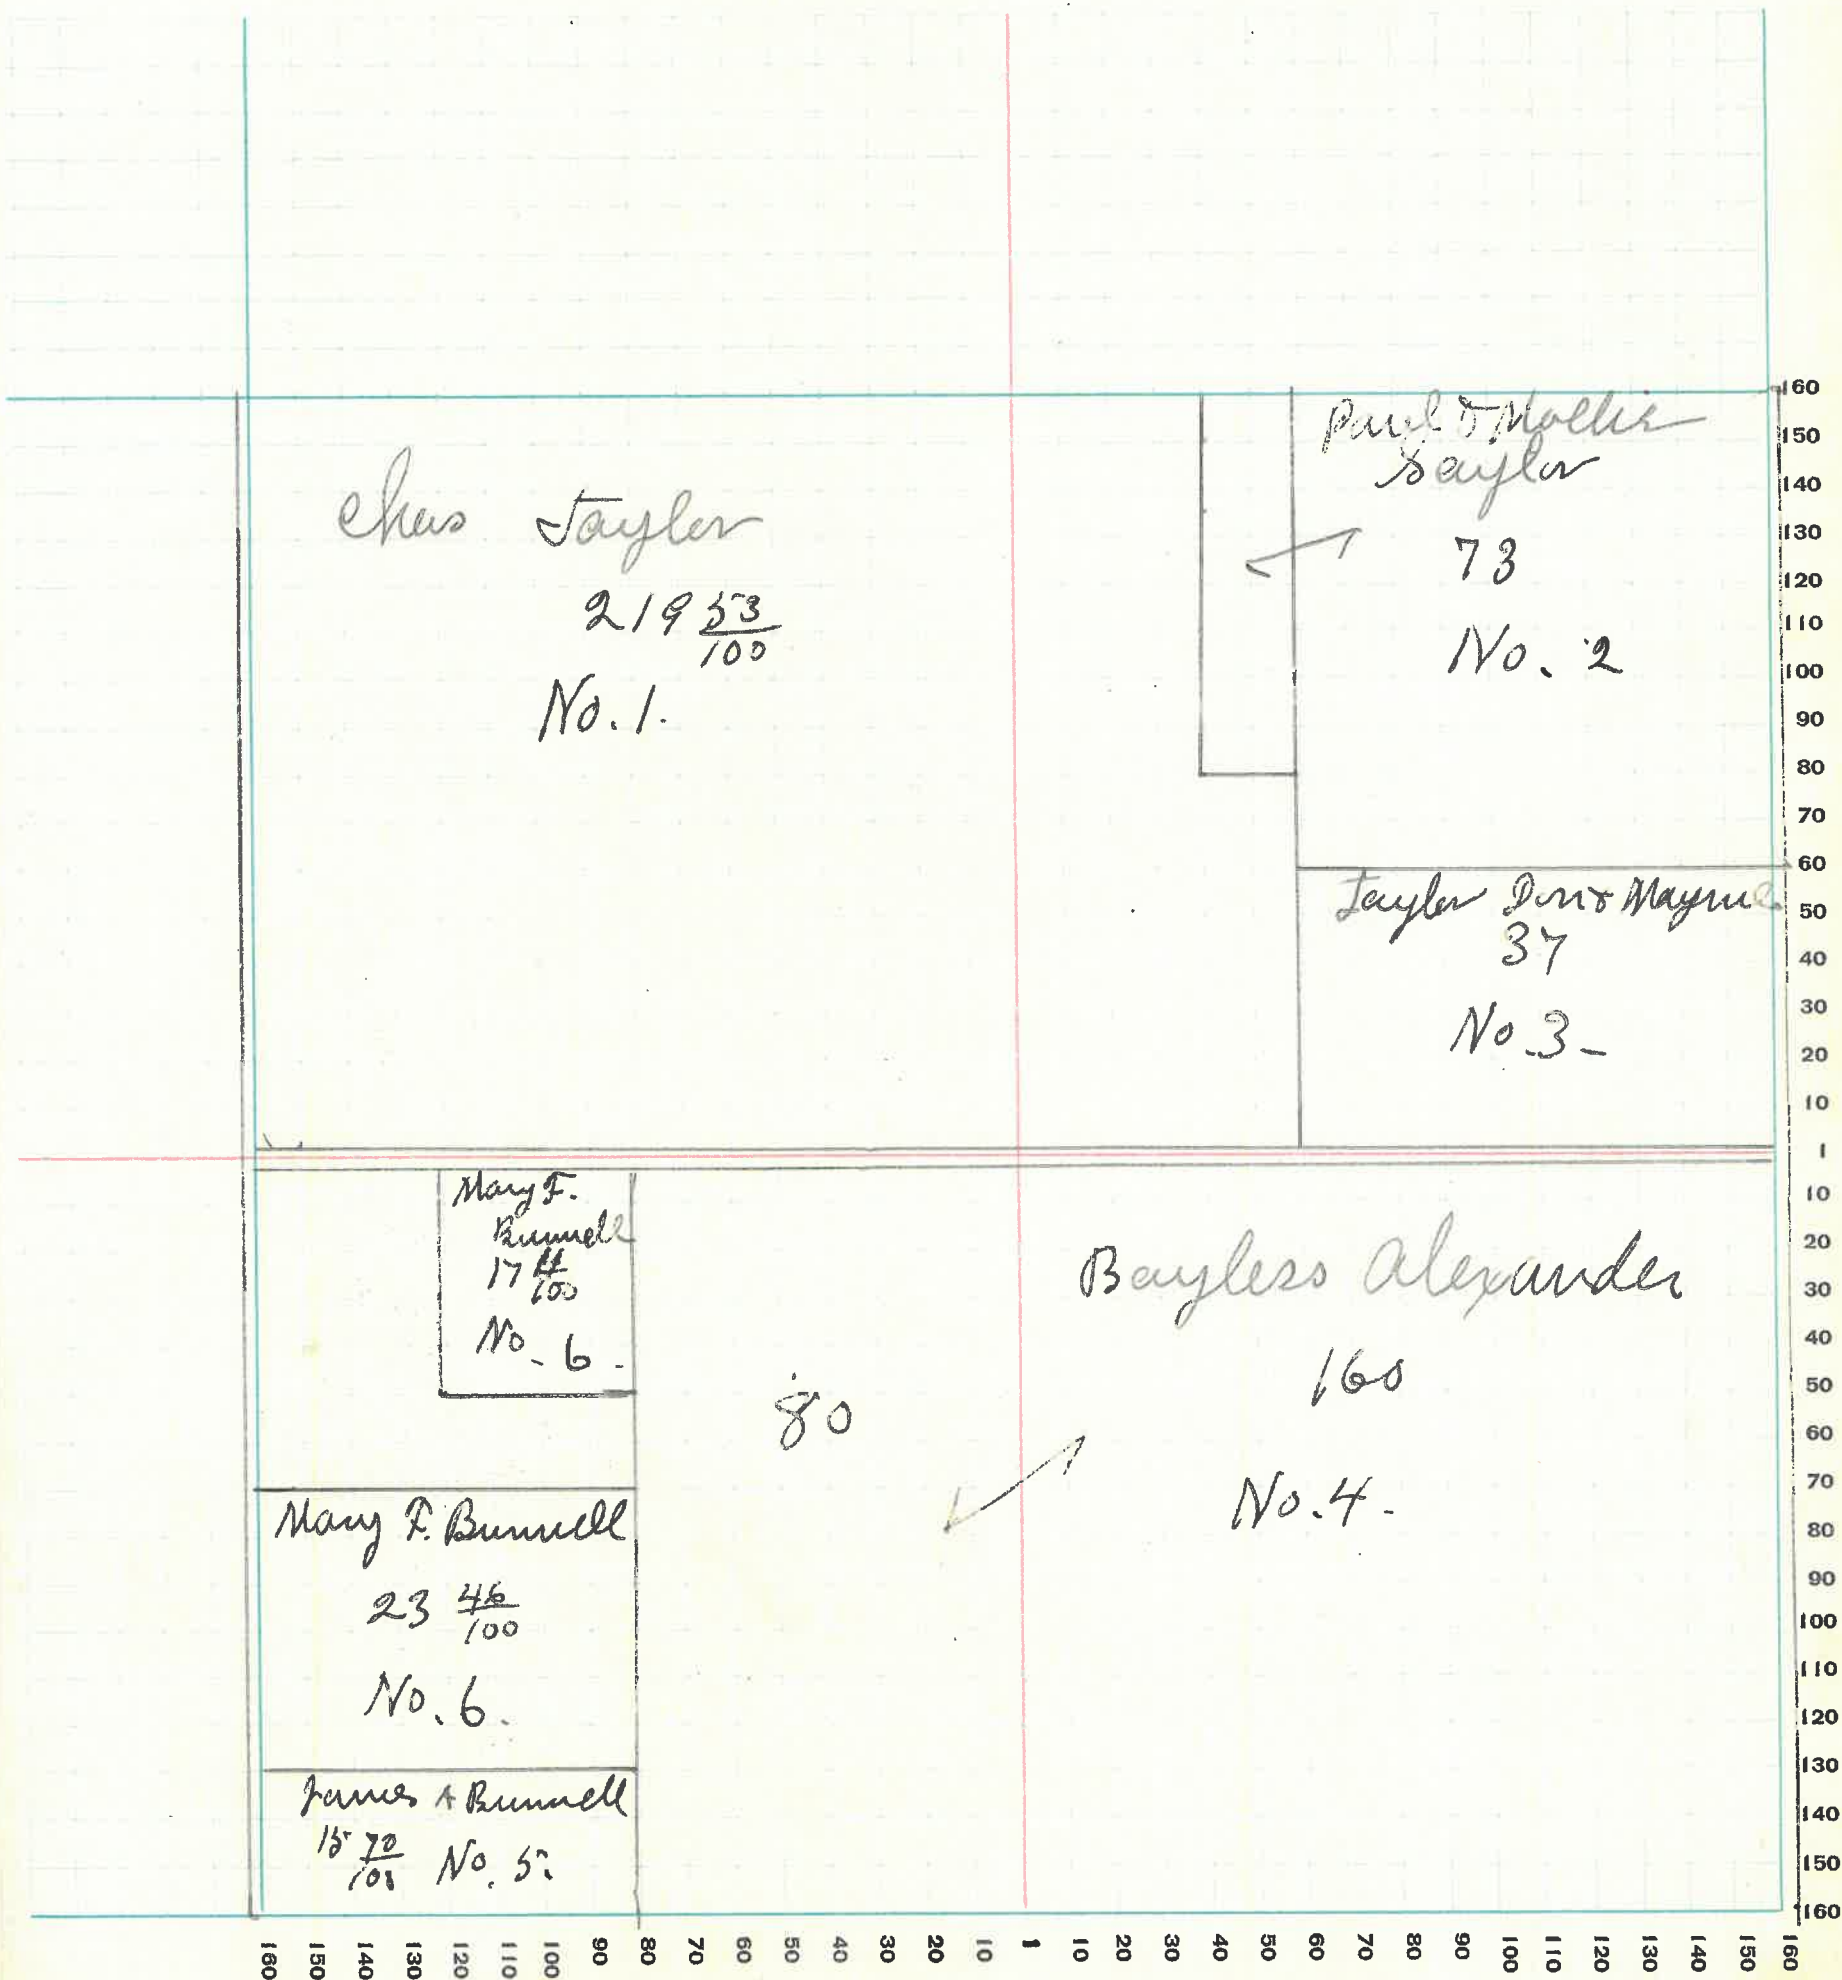 Chas Taylor
219 53/100
No. 1.
Paul & Mollie
Saylor
73
No. 2
Taylor Don & Mayme
37
No. 3-
Mary F.
Bunnell
17 11/100
No. 6.
80
Bayless Alexander
160
No. 4.
Mary F. Bunnell
23 46/100
No. 6.
James A Bunnell
15 70/100 No. 5.
160
150
140
130
120
110
100
90
80
70
60
50
40
30
20
10
1
10
20
30
40
50
60
70
80
90
100
110
120
130
140
150
160
160 150 140 130 120 110 100 90 80 70 60 50 40 30 20 10 1 10 20 30 40 50 60 70 80 90 100 110 120 130 140 150 160